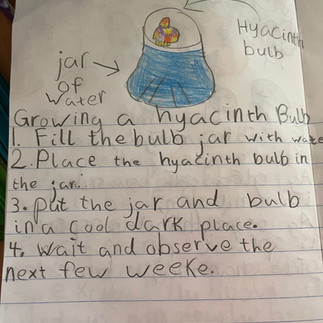 Hyacinth
bulb
jar
of
water
Growing a hyacinth Bulb
1. Fill the bulb jar with wate
2. Place the hyacinth bulb in
the jar.
3. put the jar and bulb
in a cool dark place.
4. wait and observe the
next few weeke.